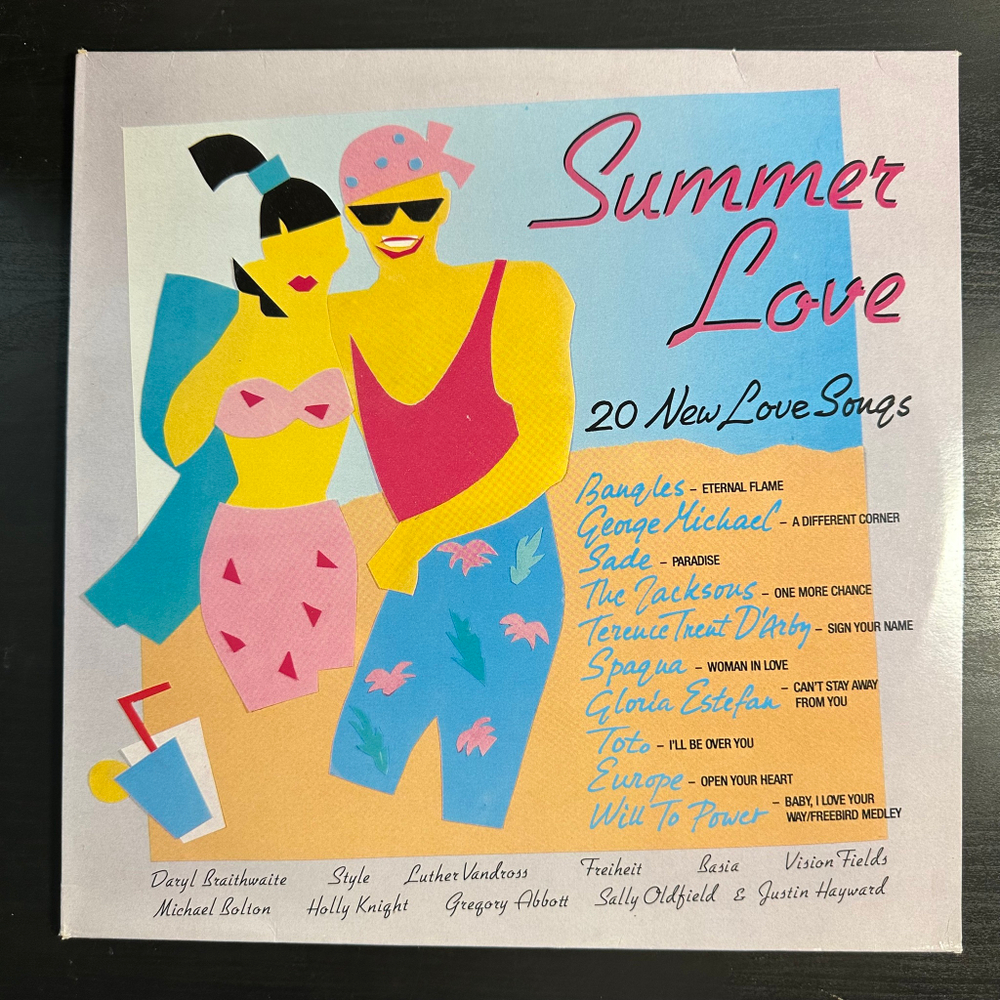 Summer
Love
20 New Love Songs
Bangles – ETERNAL FLAME
George Michael – A DIFFERENT CORNER
Sade – PARADISE
The Jacksons – ONE MORE CHANCE
Terence Trent D'Arby – SIGN YOUR NAME
Spagna – WOMAN IN LOVE
Gloria Estefan – CAN'T STAY AWAY
FROM YOU
Toto – I'LL BE OVER YOU
Europe – OPEN YOUR HEART
Will To Power – BABY, I LOVE YOUR
WAY/FREEBIRD MEDLEY
Daryl Braithwaite Style Luther Vandross Freiheit Basia Vision Fields
Michael Bolton Holly Knight Gregory Abbott Sally Oldfield & Justin Hayward